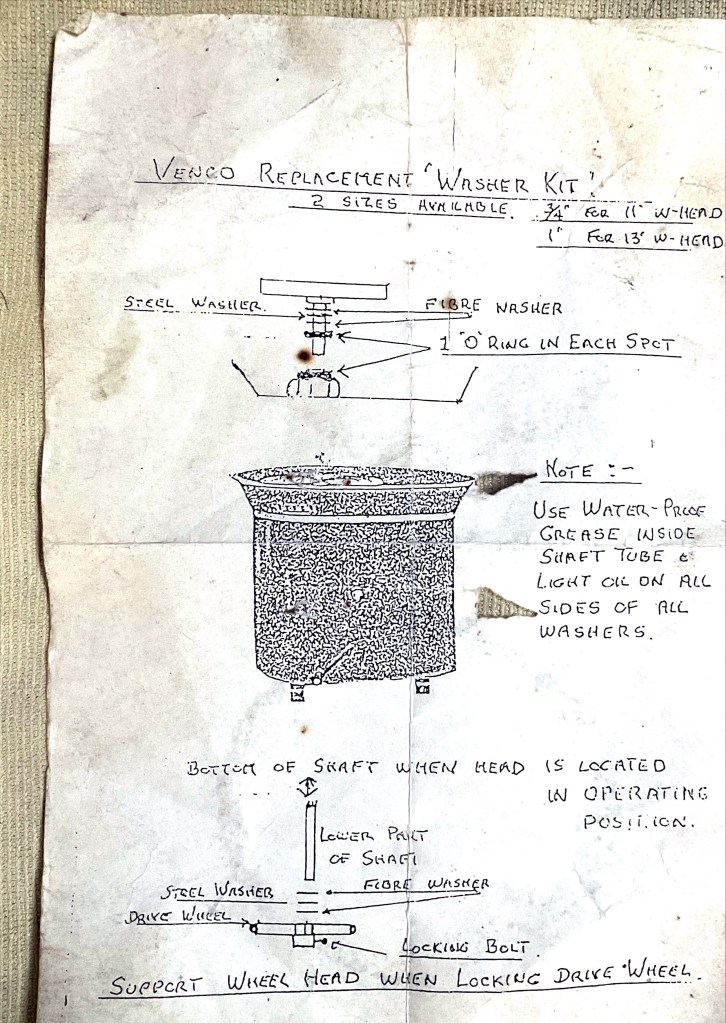 VENCO REPLACEMENT 'WASHER KIT'.
2 SIZES AVAILABLE. 3/4" FOR 11" W-HEAD
1" FOR 13" W-HEAD
STEEL WASHER. FIBRE WASHER
1 "O" RING IN EACH SPOT
NOTE :-
USE WATER-PROOF
GREASE INSIDE
SHAFT TUBE &
LIGHT OIL ON ALL
SIDES OF ALL
WASHERS.
BOTTOM OF SHAFT WHEN HEAD IS LOCATED
IN OPERATING
POSITION.
LOWER PART
OF SHAFT
STEEL WASHER FIBRE WASHER
DRIVE WHEEL
LOCKING BOLT.
SUPPORT WHEEL HEAD WHEN LOCKING DRIVE WHEEL.